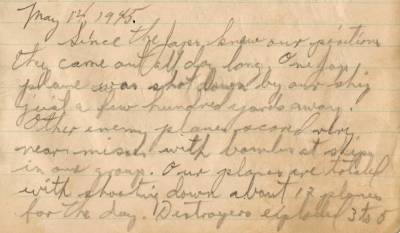 May 14, 1945.
Since the Japs knew our position
they came out all day long. One Jap
plane was shot down by our ship
just a few hundred yards away.
Other enemy planes scored very
near misses with bombs at ships
in our group. Our planes are totaled
with shooting down about 17 planes
for the day. Destroyers exploded 3 to 5